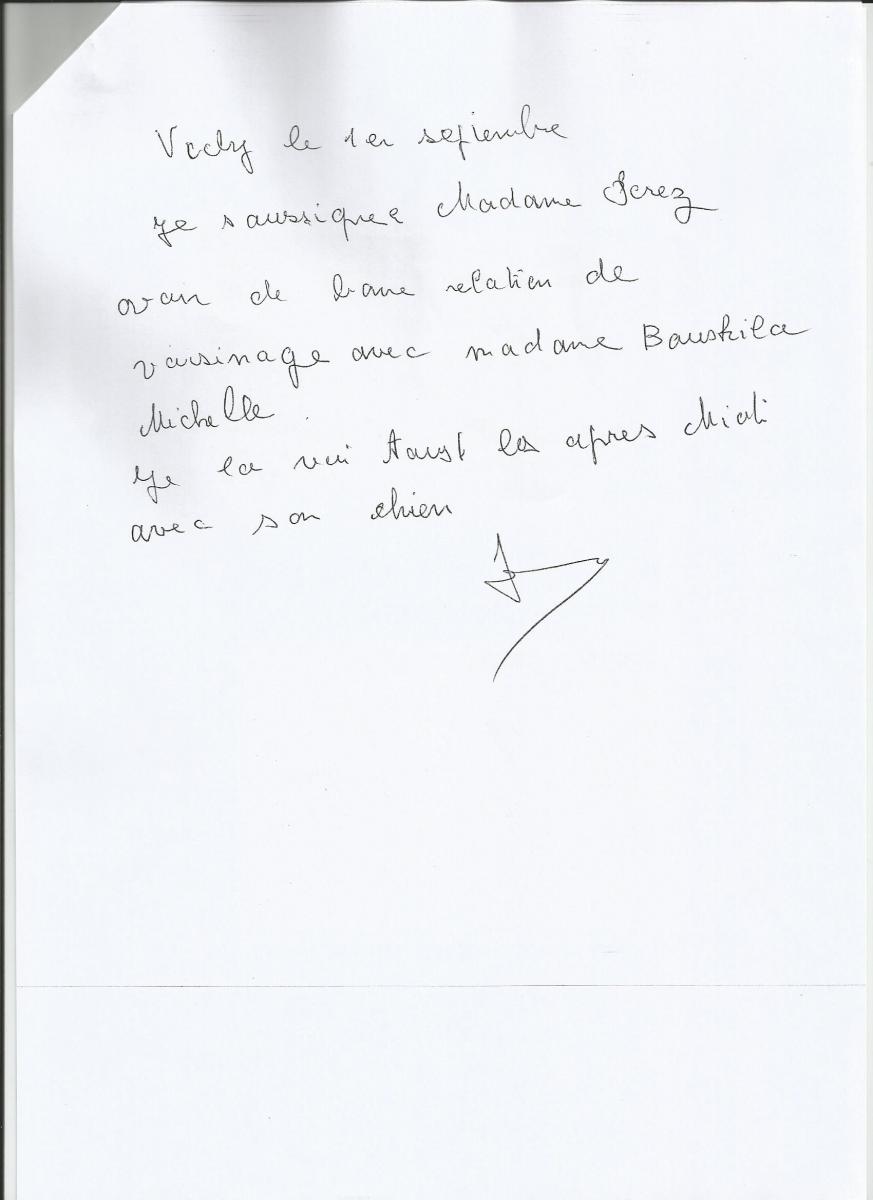 Vichy le 1er septembre
Je saussignee Madame Perez
avair de bane relation de
vaisinage avec madame Bouskila
Michelle.
Je la voi toust les apres Midi
avec son chien